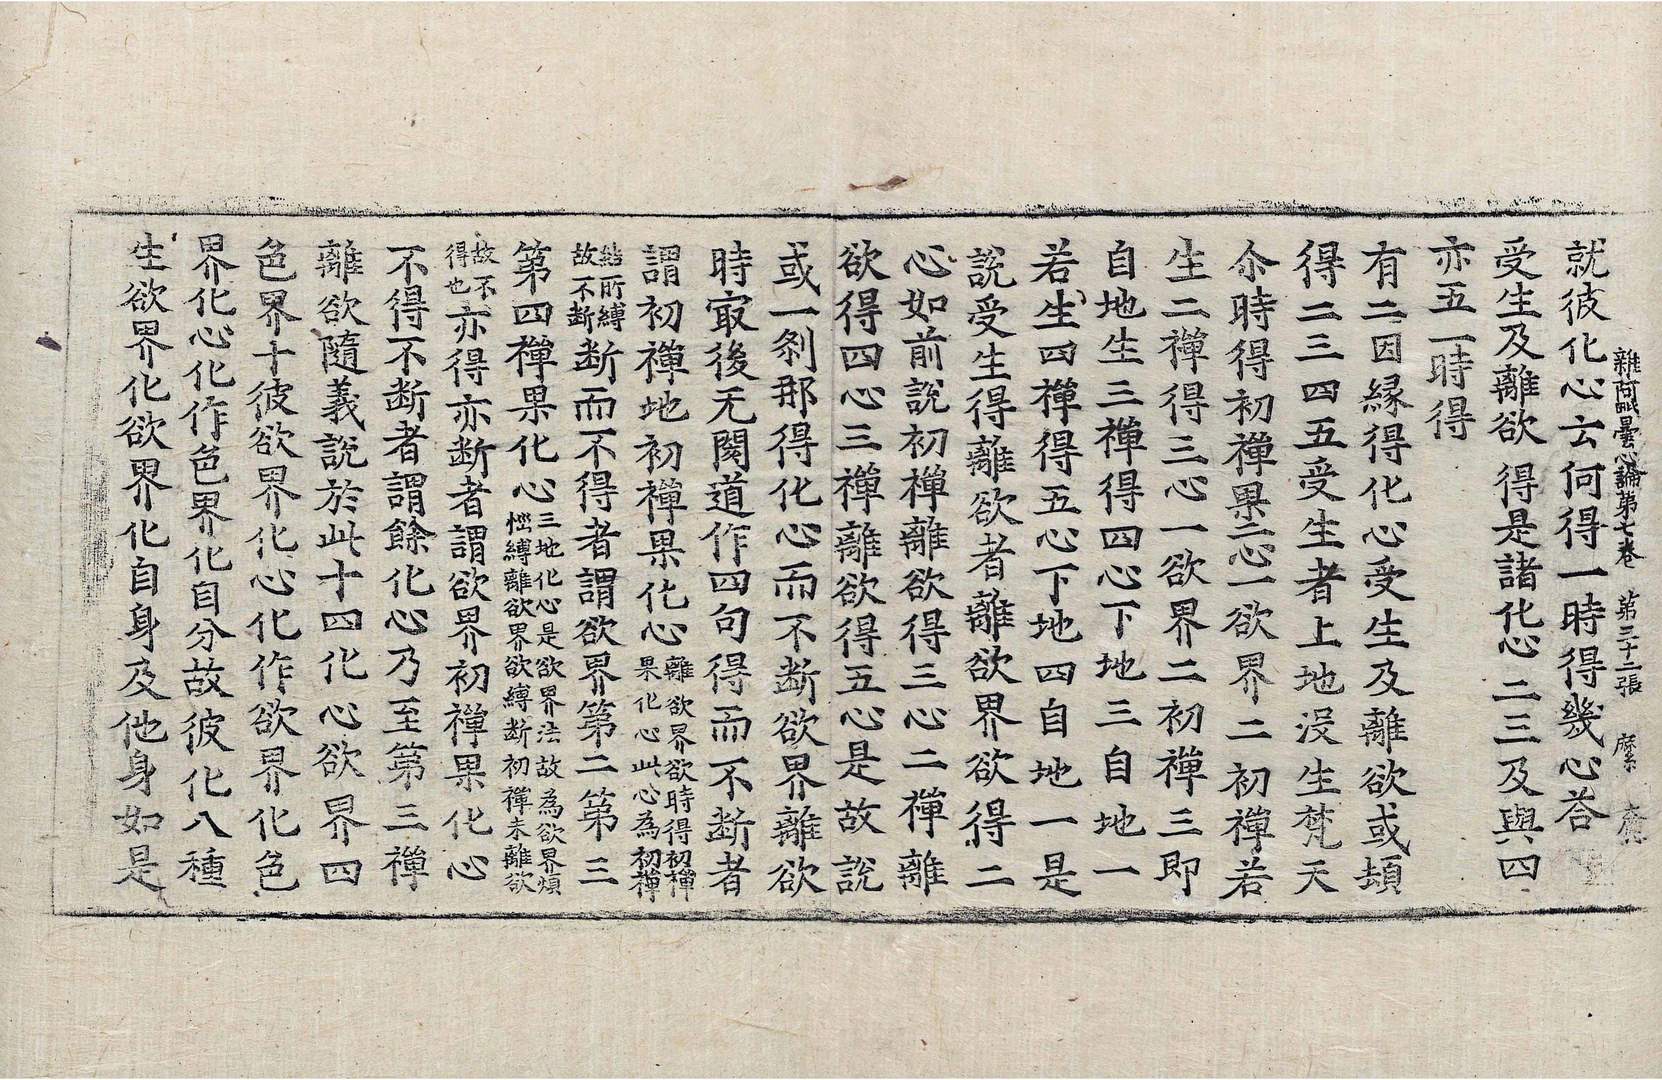 雜阿毗曇心論第七卷 第三十二張 縻
就彼化心云何得一時得幾心荅
受生及離欲 得是諸化心 二三及與四
亦五一時得
有二因縁得化心受生及離欲或頓
得二三四五受生者上地沒生梵天
尒時得初禪果二心一欲界二初禪若
生二禪得三心一欲界二初禪三即
自地生三禪得四心下地三自地一
若生四禪得五心下地四自地一是
說受生得離欲者離欲界欲得二
心如前說初禪離欲得三心二禪離
欲得四心三禪離欲得五心是故說
或一剎那得化心而不断欲界離欲
時冣後无閡道作四句得而不断者
謂初禪地初禪果化心離欲界欲時得初禪果化心此心為初禪
結所縛故不断断而不得者謂欲界第二第三
第四禪果化心三地化心是欲界法故為欲界煩惱縛離欲界欲縛断初禪未離欲
故不得也亦得亦断者謂欲界初禪果化心
不得不断者謂餘化心乃至第三禪
離欲隨義說於此十四化心欲界四
色界十彼欲界化心化作欲界化色
界化心化作色界化自分故彼化八種
生欲界化欲界化自身及他身如是